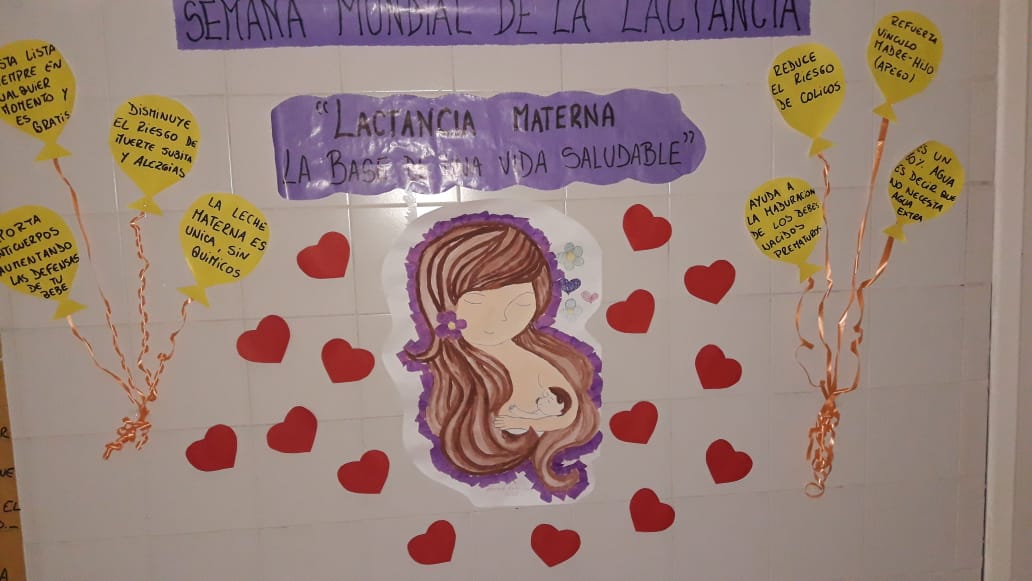 SEMANA MUNDIAL DE LA LACTANCIA
"LACTANCIA MATERNA
LA BASE DE UNA VIDA SALUDABLE"
STA LISTA
EMPRE EN
UALQUIER
MOMENTO Y
ES
GRATIS
DISMINUYE
EL RIESGO DE
MUERTE SUBITA
Y ALERGIAS
PORTA
NTICUERPOS
AUMENTANDO
LAS DEFENSAS
DE TU
BEBE
LA LECHE
MATERNA ES
UNICA, SIN
QUIMICOS
REDUCE
EL RIESGO
DE COLICOS
REFUERZA
VINCULO
MADRE-HIJO
(APEGO)
AYUDA A
LA MADURACION
DE LOS BEBES
NACIDOS
PREMATUROS
ES UN
80% AGUA
ES DECIR QUE
NO NECESITA
AGUA
EXTRA
R
UE
EL
O._
A